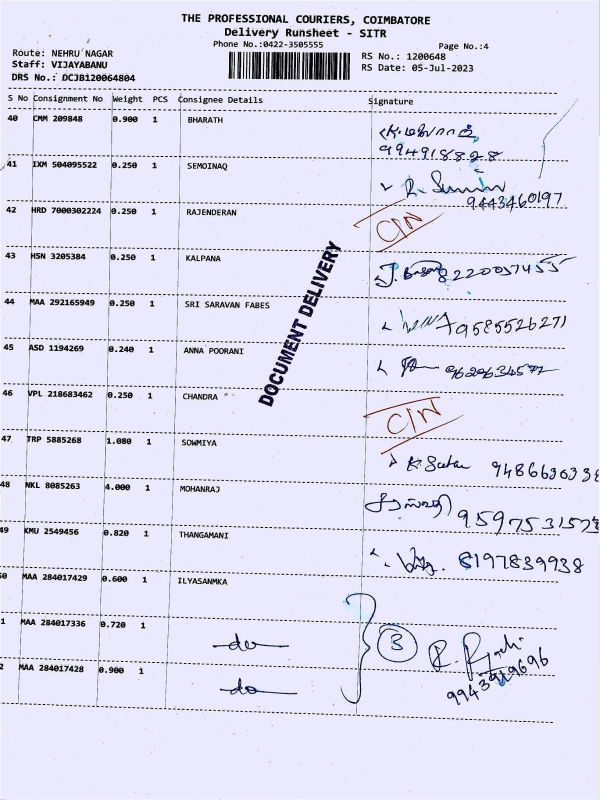 THE PROFESSIONAL COURIERS, COIMBATORE
Delivery Runsheet - SITR
Phone No.:0422-3505555
Page No.:4
Route: NEHRU NAGAR
Staff: VIJAYABANU
DRS No.: DCJB120064804
RS No.: 1200648
RS Date: 05-Jul-2023
S No Consignment No Weight PCS Consignee Details Signature
40 CMM 209848 0.900 1 BHARATH
9949188828
41 IXM 504095522 0.250 1 SEMOINAQ
9443460197
42 HRD 7000302224 0.250 1 RAJENDERAN C/N
43 HSN 3205384 0.250 1 KALPANA 8220057455
44 MAA 292165949 0.250 1 SRI SARAVAN FABES 9585526271
45 ASD 1194269 0.240 1 ANNA POORANI
46 VPL 218683462 0.250 1 CHANDRA C/N
47 TRP 5885268 1.080 1 SOWMIYA
48 NKL 8085263 4.000 1 MOHANRAJ
49 KMU 2549456 0.820 1 THANGAMANI 8197839938
0 MAA 284017429 0.600 1 ILYASANMKA
1 MAA 284017336 0.720 1 do 3
2 MAA 284017428 0.900 1 do
DOCUMENT DELIVERY